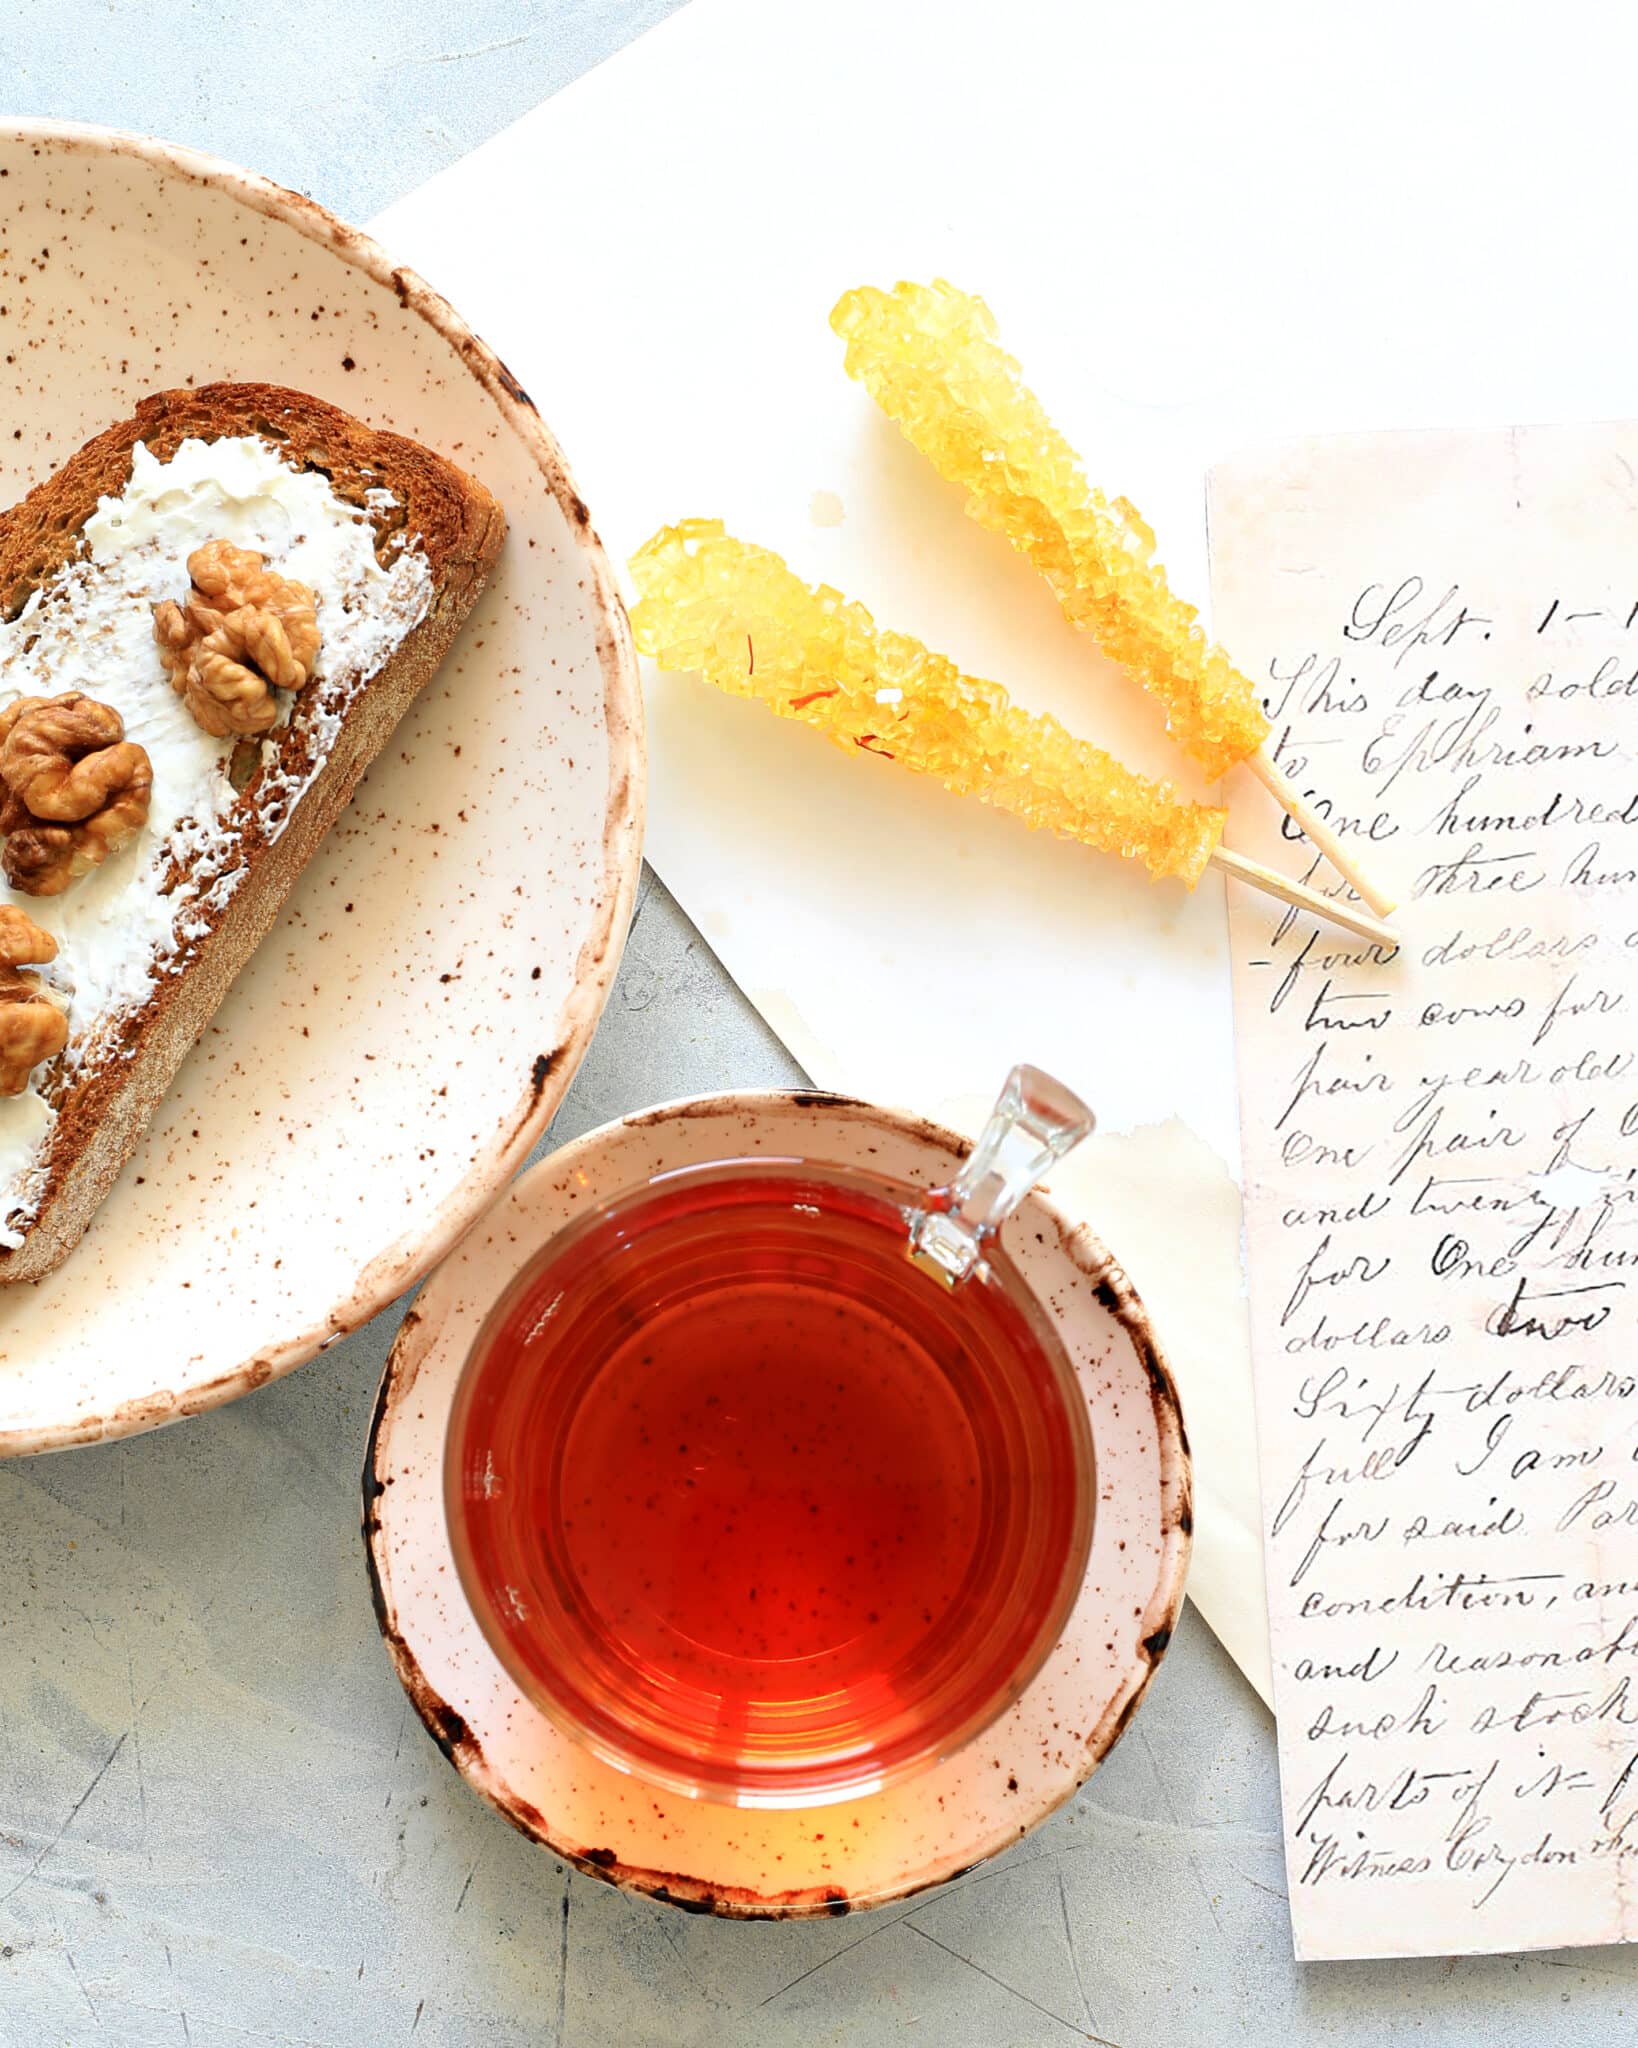 Sept. 1-1
This day sold
to Ephriam
One hundred
for three hun
-four dollars
two cows for
pair year old
One pair of
and twenty
for One hun
dollars two
Sixty dollars
full I am
for said Par
condition, and
and reasonabl
such stock
parts of it=
Witness Corydon